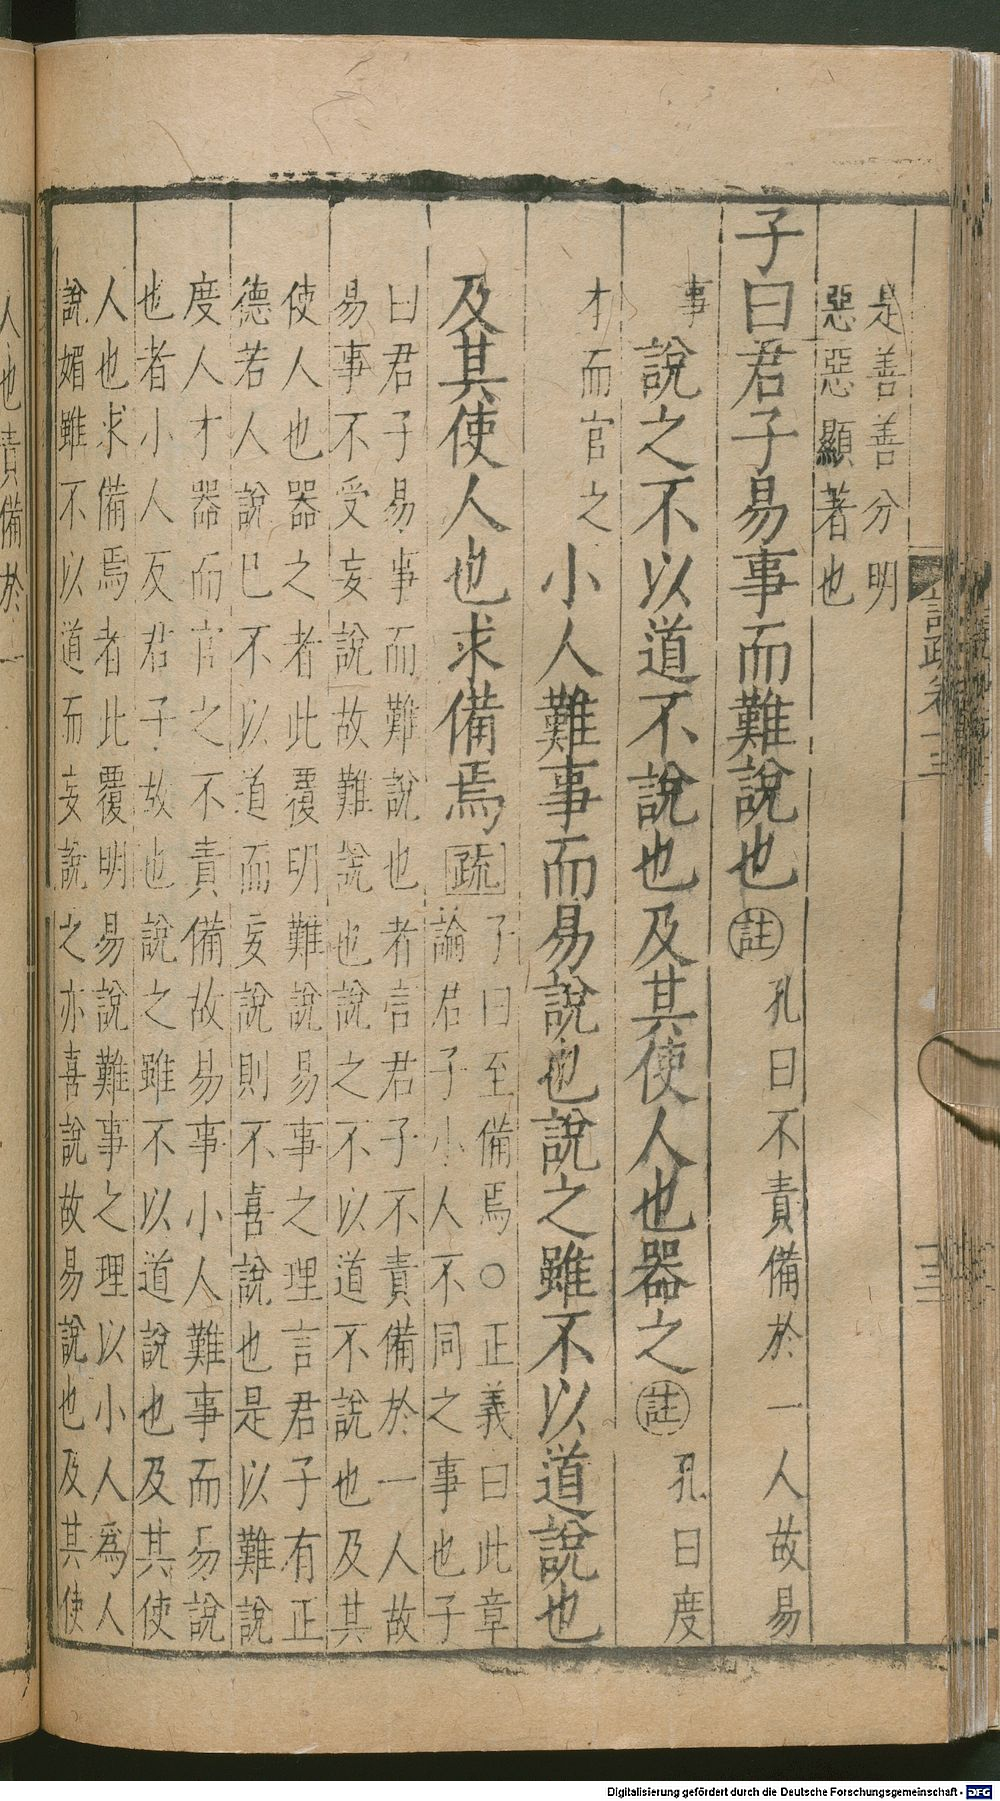 是善善分明
惡惡顯著也
子曰君子易事而難說也註孔曰不責備於一人故易
事說之不以道不說也及其使人也器之註孔曰度
才而官之小人難事而易說也說之雖不以道說也
及其使人也求備焉疏子曰至備焉○正義曰此章
論君子小人不同之事也子
曰君子易事而難說也者言君子不責備於一人故
易事不受妄說故難說也說之不以道不說也及其
使人也器之者此覆明難說易事之理言君子有正
德若人說已不以道而妄說則不喜說也是以難說
度人才器而官之不責備故易事小人難事而易說
也者小人反君子故也說之雖不以道說也及其使
人也求備焉者此覆明易說難事之理以小人為人
說媚雖不以道而妄說之亦喜說故易說也及其使
人也責備於一
Digitalisierung gefördert durch die Deutsche Forschungsgemeinschaft - DFG